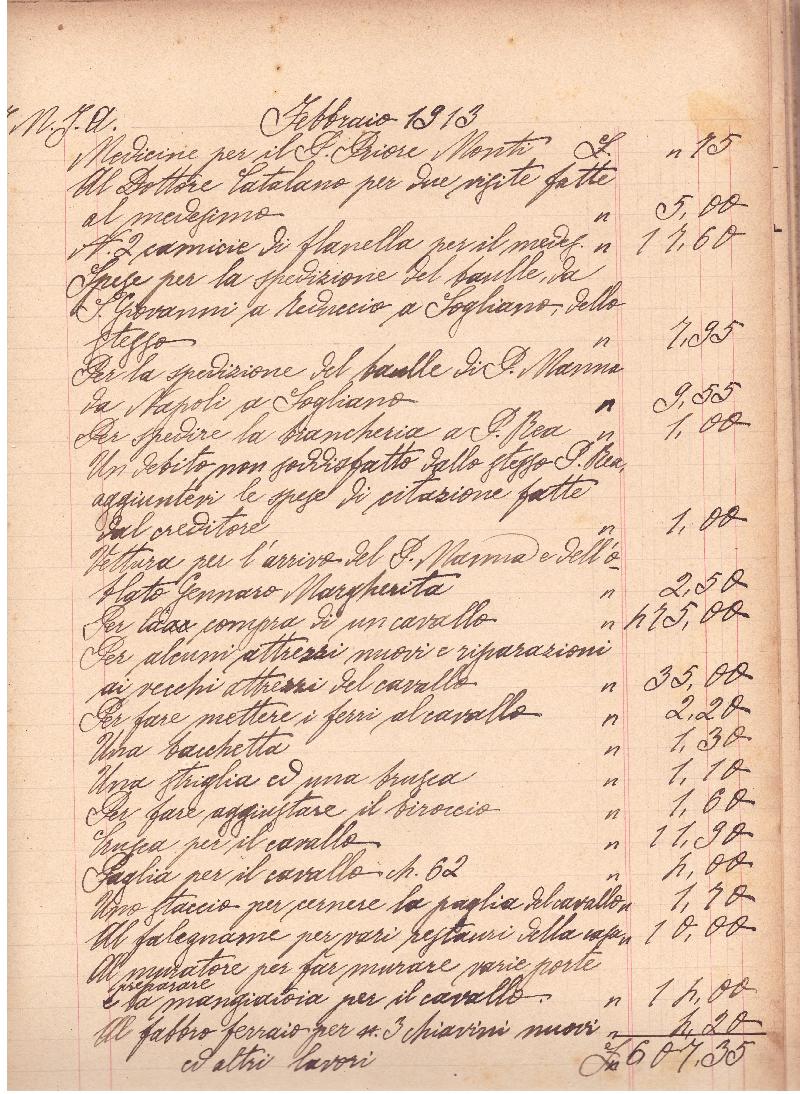 M. J. A. Febbraio 1913
Medicine per il P. Priore Monti £ " 75
Al Dottore Catalano per due visite fatte
al medesimo " 5,00
N. 2 camicie di flanella per il medes. " 17,60
Spese per la spedizione del baulle, da
S. Giovanni a Teduccio a Sogliano, dello
stesso " 7,95
Per la spedizione del baulle di P. Manna
da Napoli a Sogliano " 9,55
Per spedire la biancheria a P. Rea " 1,00
Un debito non soddisfatto dallo stesso P. Rea,
aggiuntevi le spese di citazione fatte
dal creditore " 1,00
Vettura per l'arrivo del P. Manna e dell'o-
blato Gennaro Margherita " 2,50
Per la compra di un cavallo " 475,00
Per alcuni attrezzi nuovi e riparazioni
ai vecchi attrezzi del cavallo " 35,00
Per fare mettere i ferri al cavallo " 2,20
Una bacchetta " 1,30
Una striglia ed una brusca " 1,10
Per fare aggiustare il biroccio " 1,60
Crusca per il cavallo " 11,90
Paglia per il cavallo ch. 62 " 4,00
Uno staccio per cernere la paglia del cavallo " 1,70
Al falegname per vari restauri della casa " 10,00
Al muratore per far murare varie porte
e preparare la mangiatoia per il cavallo. " 14,00
Al fabbro ferraio per n. 3 chiavini nuovi " 4,20
ed altri lavori £ 607,35